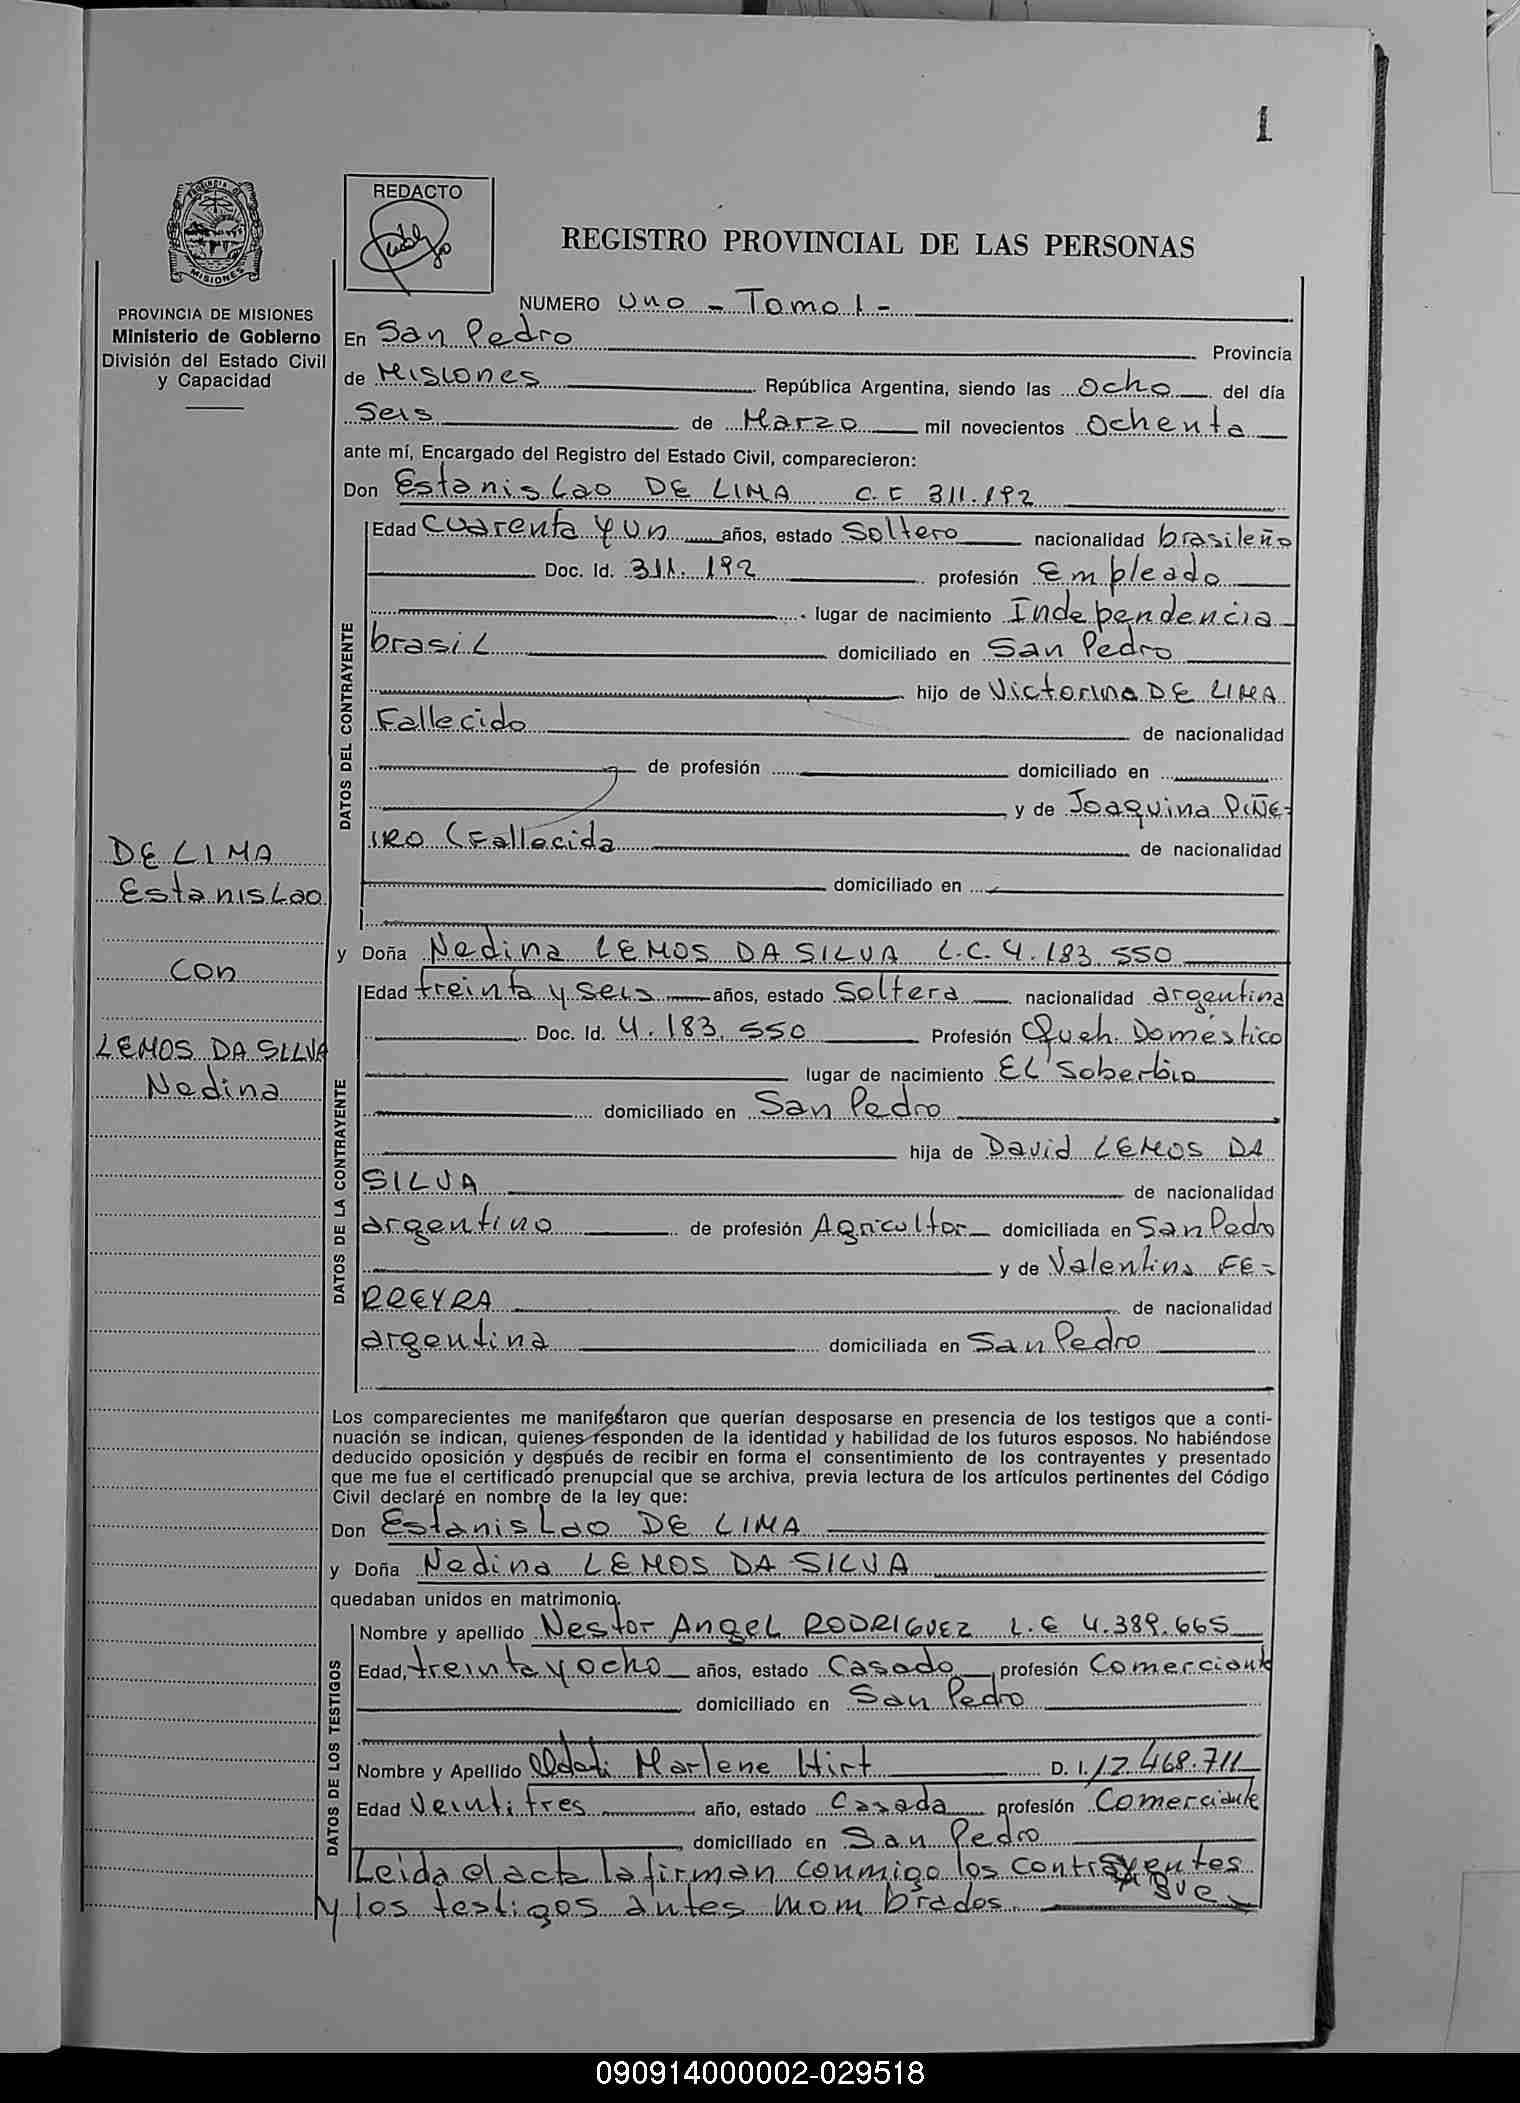 1
PROVINCIA DE MISIONES
MISIONES
PROVINCIA DE MISIONES
Ministerio de Gobierno
División del Estado Civil
y Capacidad
REDACTO
REGISTRO PROVINCIAL DE LAS PERSONAS
NUMERO uno - Tomo 1 -
En San Pedro Provincia
de Misiones República Argentina, siendo las ocho del día
seis de Marzo mil novecientos ochenta
ante mí, Encargado del Registro del Estado Civil, comparecieron:
Don Estanislao DE LIMA C.E 311.192
DATOS DEL CONTRAYENTE
Edad cuarenta y un años, estado soltero nacionalidad brasileño
Doc. Id. 311.192 profesión Empleado
lugar de nacimiento Independencia
brasil domiciliado en San Pedro
hijo de Victorino DE LIMA
Fallecido de nacionalidad
de profesión domiciliado en
y de Joaquina PIÑE=
IRO (Fallecida de nacionalidad
domiciliado en
DE LIMA
Estanislao
con
LEMOS DA SILVA
Nedina
y Doña Nedina LEMOS DA SILVA L.C. 4.183.550
DATOS DE LA CONTRAYENTE
Edad treinta y seis años, estado soltera nacionalidad argentina
Doc. Id. 4.183.550 Profesión Queh. Doméstico
lugar de nacimiento El Soberbio
domiciliado en San Pedro
hija de David LEMOS DA
SILVA de nacionalidad
argentino de profesión Agricultor domiciliada en San Pedro
y de Valentina FE=
RREYRA de nacionalidad
argentina domiciliada en San Pedro
Los comparecientes me manifestaron que querían desposarse en presencia de los testigos que a conti-
nuación se indican, quienes responden de la identidad y habilidad de los futuros esposos. No habiéndose
deducido oposición y después de recibir en forma el consentimiento de los contrayentes y presentado
que me fue el certificado prenupcial que se archiva, previa lectura de los artículos pertinentes del Código
Civil declaré en nombre de la ley que:
Don Estanislao DE LIMA
y Doña Nedina LEMOS DA SILVA
quedaban unidos en matrimonio.
DATOS DE LOS TESTIGOS
Nombre y apellido Nestor Angel RODRIGUEZ L.E 4.389.665
Edad, treinta y ocho años, estado Casado profesión Comerciante
domiciliado en San Pedro
Nombre y Apellido Marlene Hirt D. I. 12.468.711
Edad Veintitres año, estado Casada profesión Comerciante
domiciliado en San Pedro
Leida el acta la firman conmigo los contrayentes
y los testigos antes mom brados. sigue
090914000002-029518